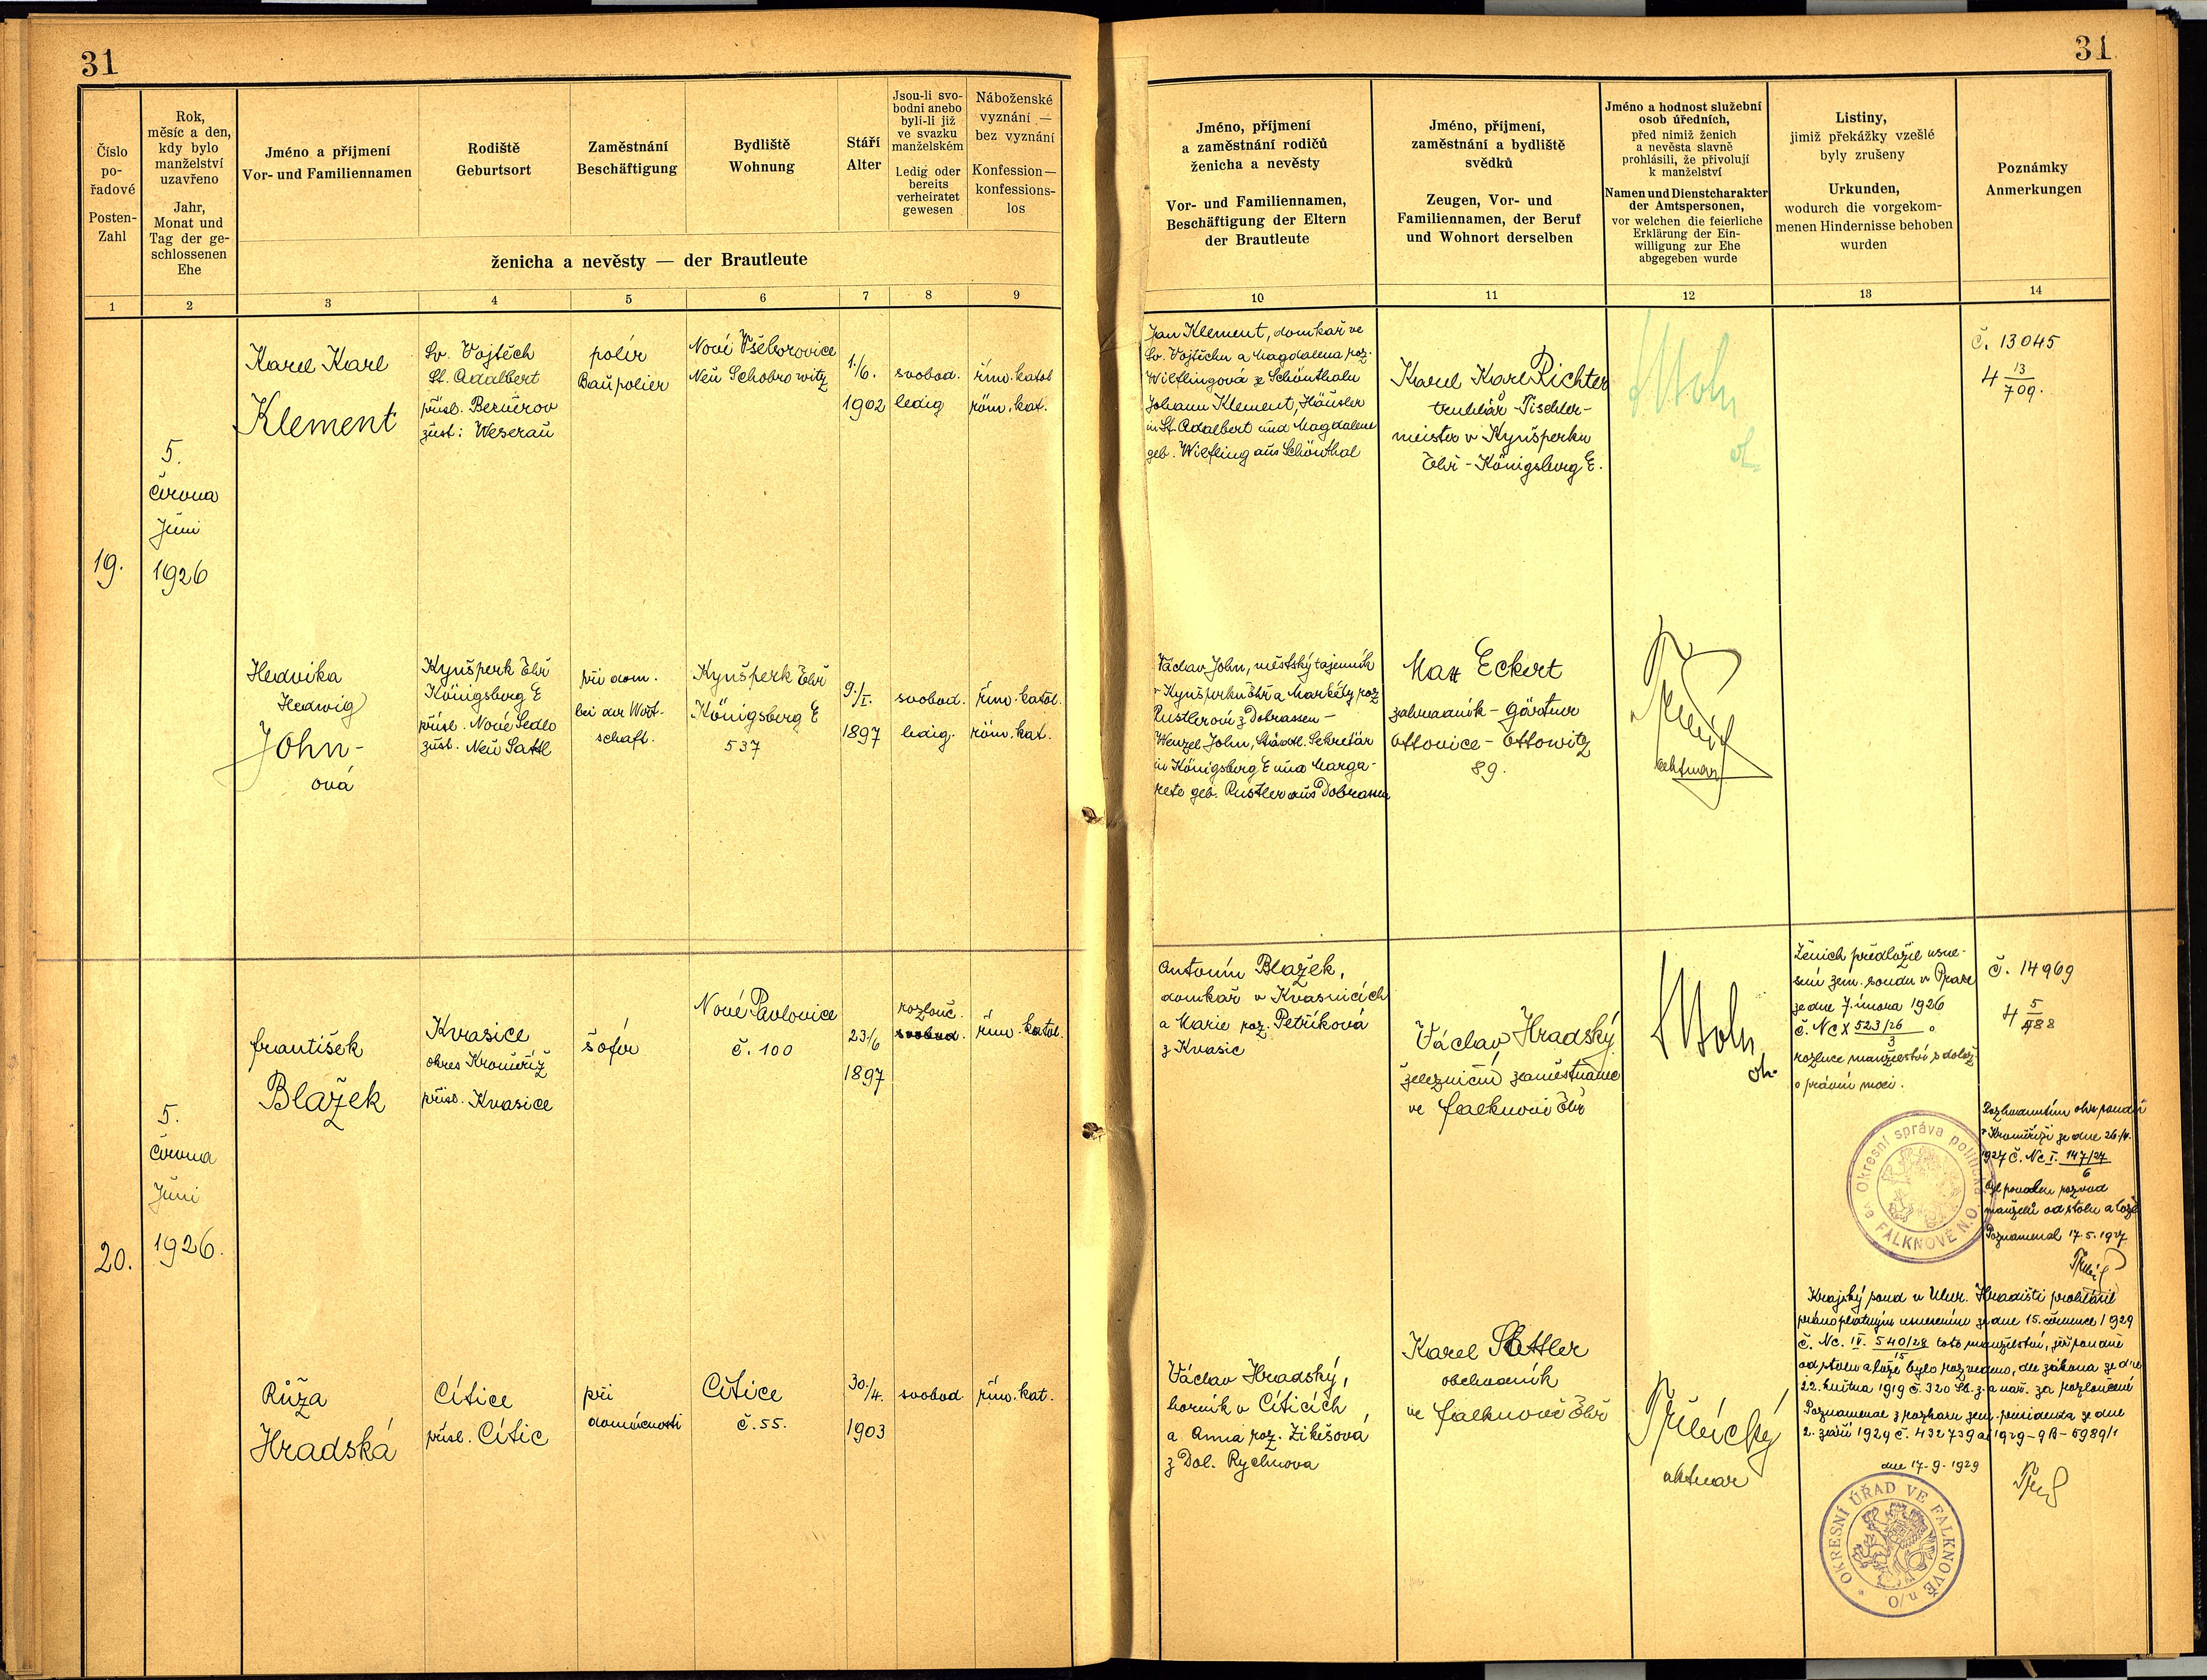 31
31
Číslo
po-
řadové
Posten-
Zahl
Rok,
měsíc a den,
kdy bylo
manželství
uzavřeno
Jahr,
Monat und
Tag der ge-
schlossenen
Ehe
Jméno a příjmení
Vor- und Familiennamen
Rodiště
Geburtsort
Zaměstnání
Beschäftigung
Bydliště
Wohnung
Stáří
Alter
Jsou-li svo-
bodni anebo
byli-li již
ve svazku
manželském
Ledig oder
bereits
verheiratet
gewesen
Náboženské
vyznání —
bez vyznání
Konfession —
konfessions-
los
ženicha a nevěsty — der Brautleute
Jméno, příjmení
a zaměstnání rodičů
ženicha a nevěsty
Vor- und Familiennamen,
Beschäftigung der Eltern
der Brautleute
Jméno, příjmení,
zaměstnání a bydliště
svědků
Zeugen, Vor- und
Familiennamen, der Beruf
und Wohnort derselben
Jméno a hodnost služební
osob úředních,
před nimiž ženich
a nevěsta slavně
prohlásili, že přivolují
k manželství
Namen und Dienstcharakter
der Amtspersonen,
vor welchen die feierliche
Erklärung der Ein-
willigung zur Ehe
abgegeben wurde
Listiny,
jimiž překážky vzešlé
byly zrušeny
Urkunden,
wodurch die vorgekom-
menen Hindernisse behoben
wurden
Poznámky
Anmerkungen
1 2 3 4 5 6 7 8 9 10 11 12 13 14
19.
5.
června
Juni
1926
Karel Karl
Klement
Sv. Vojtěch
St. Adalbert
přísl. Bezvěrov
zust: Weserau
polír
Baupolier
Nové Všeborovice
Neu Schobrowitz
1./6.
1902
svobod.
ledig
řím. katol
röm. kat.
Jan Klement, domkař ve
Sv. Vojtěchu a Magdalena roz.
Wilflingová ze Schönthalu
Johann Klement, Häusler
in St. Adalbert und Magdalene
geb. Wilfling aus Schönthal
Karel Karl Richter
truhlář - Tischler-
meister v Kynšperku
Ohř - Königsberg E.
č. 13045
4 13/709.
Hedvika
Hedwig
John-
ová
Kynšperk Ohř
Königsberg E
přísl. Nové Sedlo
zust. Neu Sattl
při dom.
bei der Wirt-
schaft.
Kynšperk Ohř
Königsberg E
537
9./I.
1897
svobod.
ledig.
řím. katol.
röm. kat.
Václav John, městský tajemník
v Kynšperku Ohř a Markéty roz
Rustlerové z Dobrassen -
Wenzel John, Städtl. Sekretär
in Königsberg E und Marga-
rete geb. Rustler aus Dobrassen
Max Eckert
zahradník - Gärtner
Ottovice - Ottowitz
89.
aktuar
20.
5.
června
Juni
1926.
František
Blažek
Kvasice
okres Kroměříž
přísl. Kvasice
šofér
Nové Pavlovice
č. 100
23/6
1897
rozlouč.
svobod.
řím. katol.
Antonín Blažek,
domkař v Kvasnicích
a Marie roz. Petříková
z Kvasic
Václav Hradský
železniční zaměstnanec
ve Falknově Ohř
Ženich předložil usne-
sení zem. soudu v Praze
ze dne 7. února 1926
č. Nc X 523/26 o
3
rozluce manželství s dolož.
o právní moci.
č. 14969
4 5/488
Okresní správa politická ve FALKNOVĚ N.O.
Rozhodnutím okr. soudu
v Kroměříži ze dne 26./4.
1927 č. Nc I. 147/27
6
byl povolen rozvod
manželů od stolu a lože
Poznamenal 17.5.1927
Růža
Hradská
Cítice
přísl. Cític
při
domácnosti
Cítice
č. 55.
30./4.
1903
svobod.
řím. kat.
Václav Hradský,
horník v Cíticích
a Anna roz. Zikešová
z Dol. Rychnova
Karel Sattler
obchodník
ve Falknově Ohř
aktuar
Krajský soud v Uher. Hradišti prohlásil
právoplatným usnesením ze dne 15. července 1929
č. Nc. IV. 540/28 toto manželství, jež soudně
15
od stolu a lože bylo rozvedeno, dle zákona ze dne
22. května 1919 č. 320 Sb. z. a nař. za rozloučené
Poznamenal z rozkazu zem. presidenta ze dne
2. září 1929 č. 432739 ai 1929-9B-5989/1
dne 17-9-1929
OKRESNÍ ÚŘAD VE FALKNOVĚ n/O